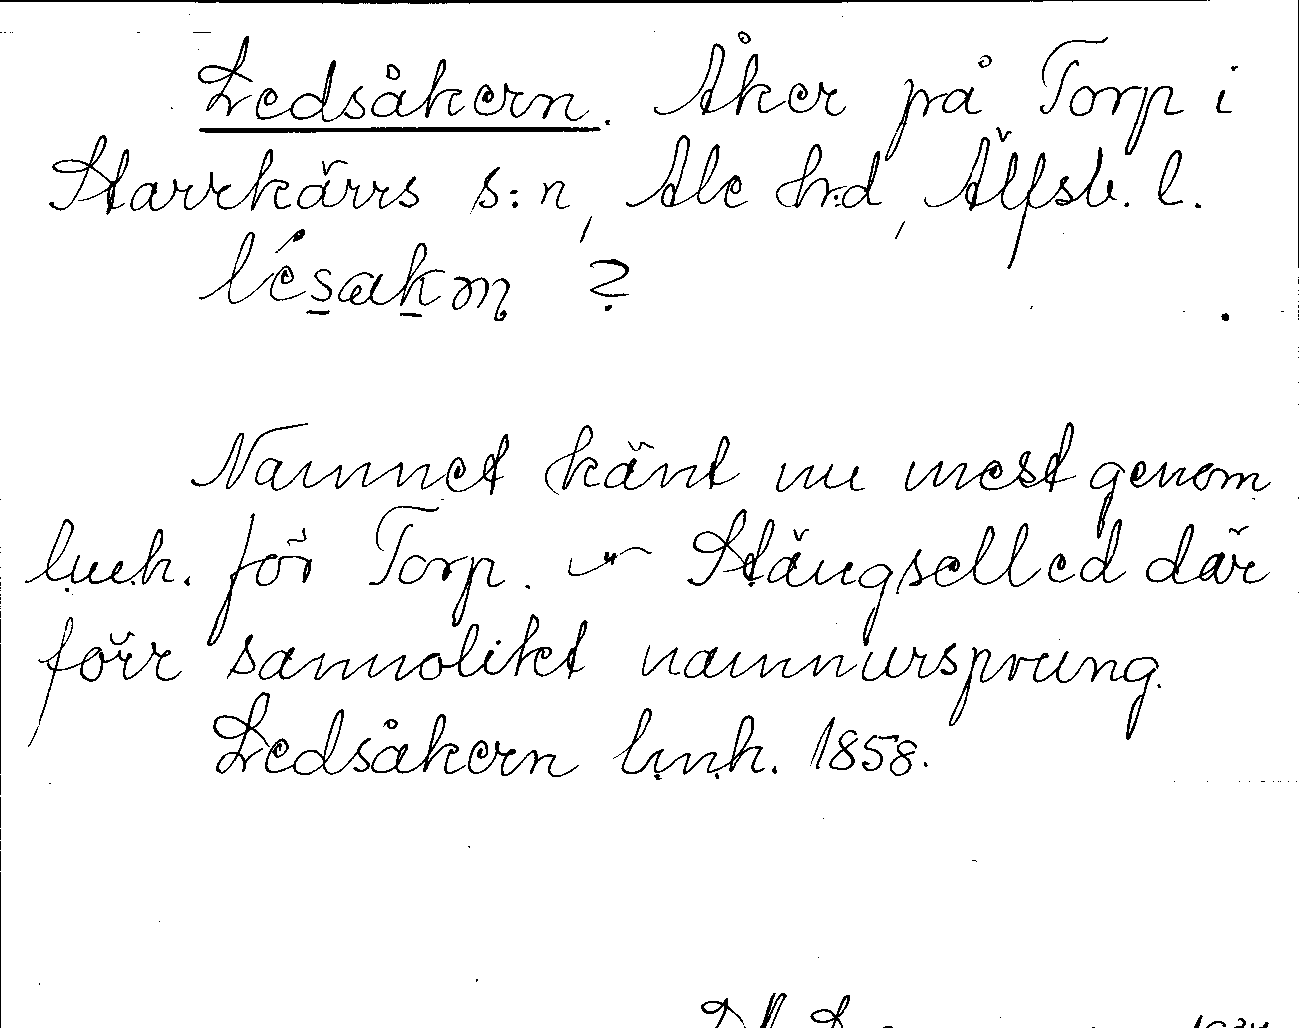 Ledsåkern. Åker på Torp i
Starrkärrs s:n, Ale h:d, Älfsb. l.
lésakm ?
Namnet känt nu mest genom
l.u.h. för Torp. ~ Stängselled där
förr sannolikt namnursprung.
Ledsåkern l.u.h. 1858.